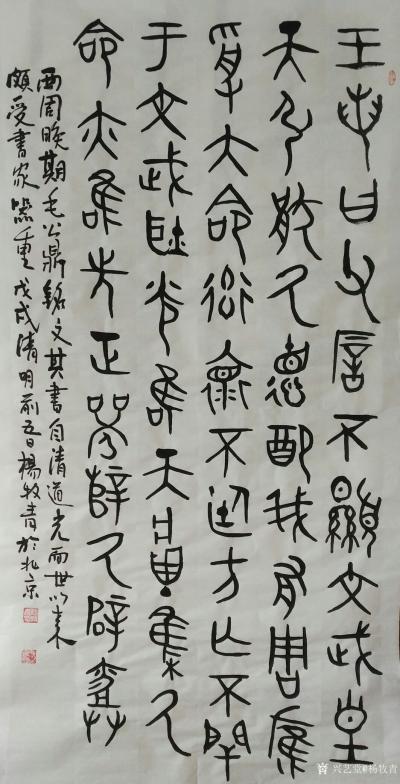 王若曰父厝不顯文武皇
天弘猒厥德配我有周雁
受大命衒褱不廷方亡不閈
于文武耿光隹天將集厥
命亦隹先正辥厥辟
西周晚期毛公鼎銘文其書自清道光面世以来
頗受書家器重戊戌清明前五日楊牧青於北京
兴艺堂@杨牧青